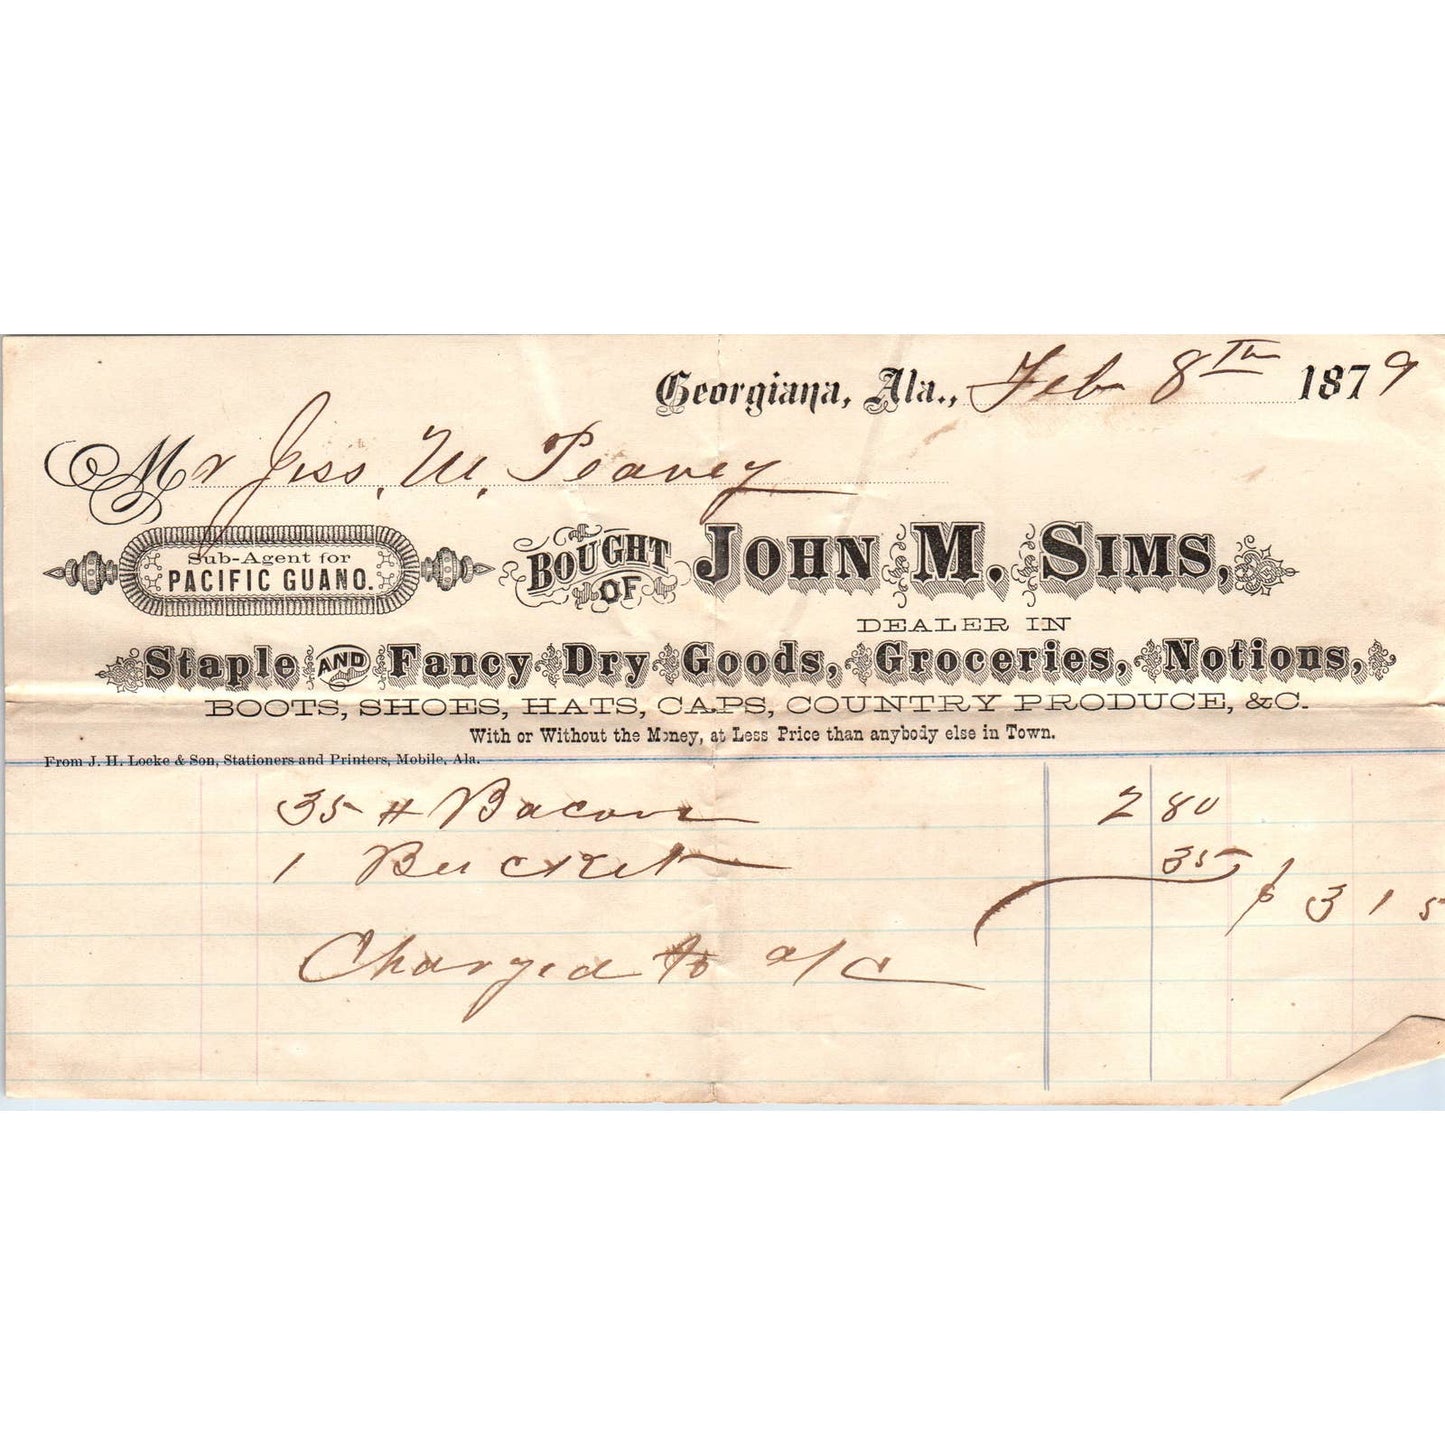 Georgiana, Ala., Feb 8th 1879
Mr Jess. W. Peavey
Sub-Agent for
PACIFIC GUANO.
BOUGHT OF JOHN M. SIMS,
DEALER IN
Staple AND Fancy Dry Goods, Groceries, Notions,
BOOTS, SHOES, HATS, CAPS, COUNTRY PRODUCE, &C.
With or Without the Money, at Less Price than anybody else in Town.
From J. H. Locke & Son, Stationers and Printers, Mobile, Ala.
35 # Bacon 2 80
1 Bucket 35
$ 3 15
Charged to a/c